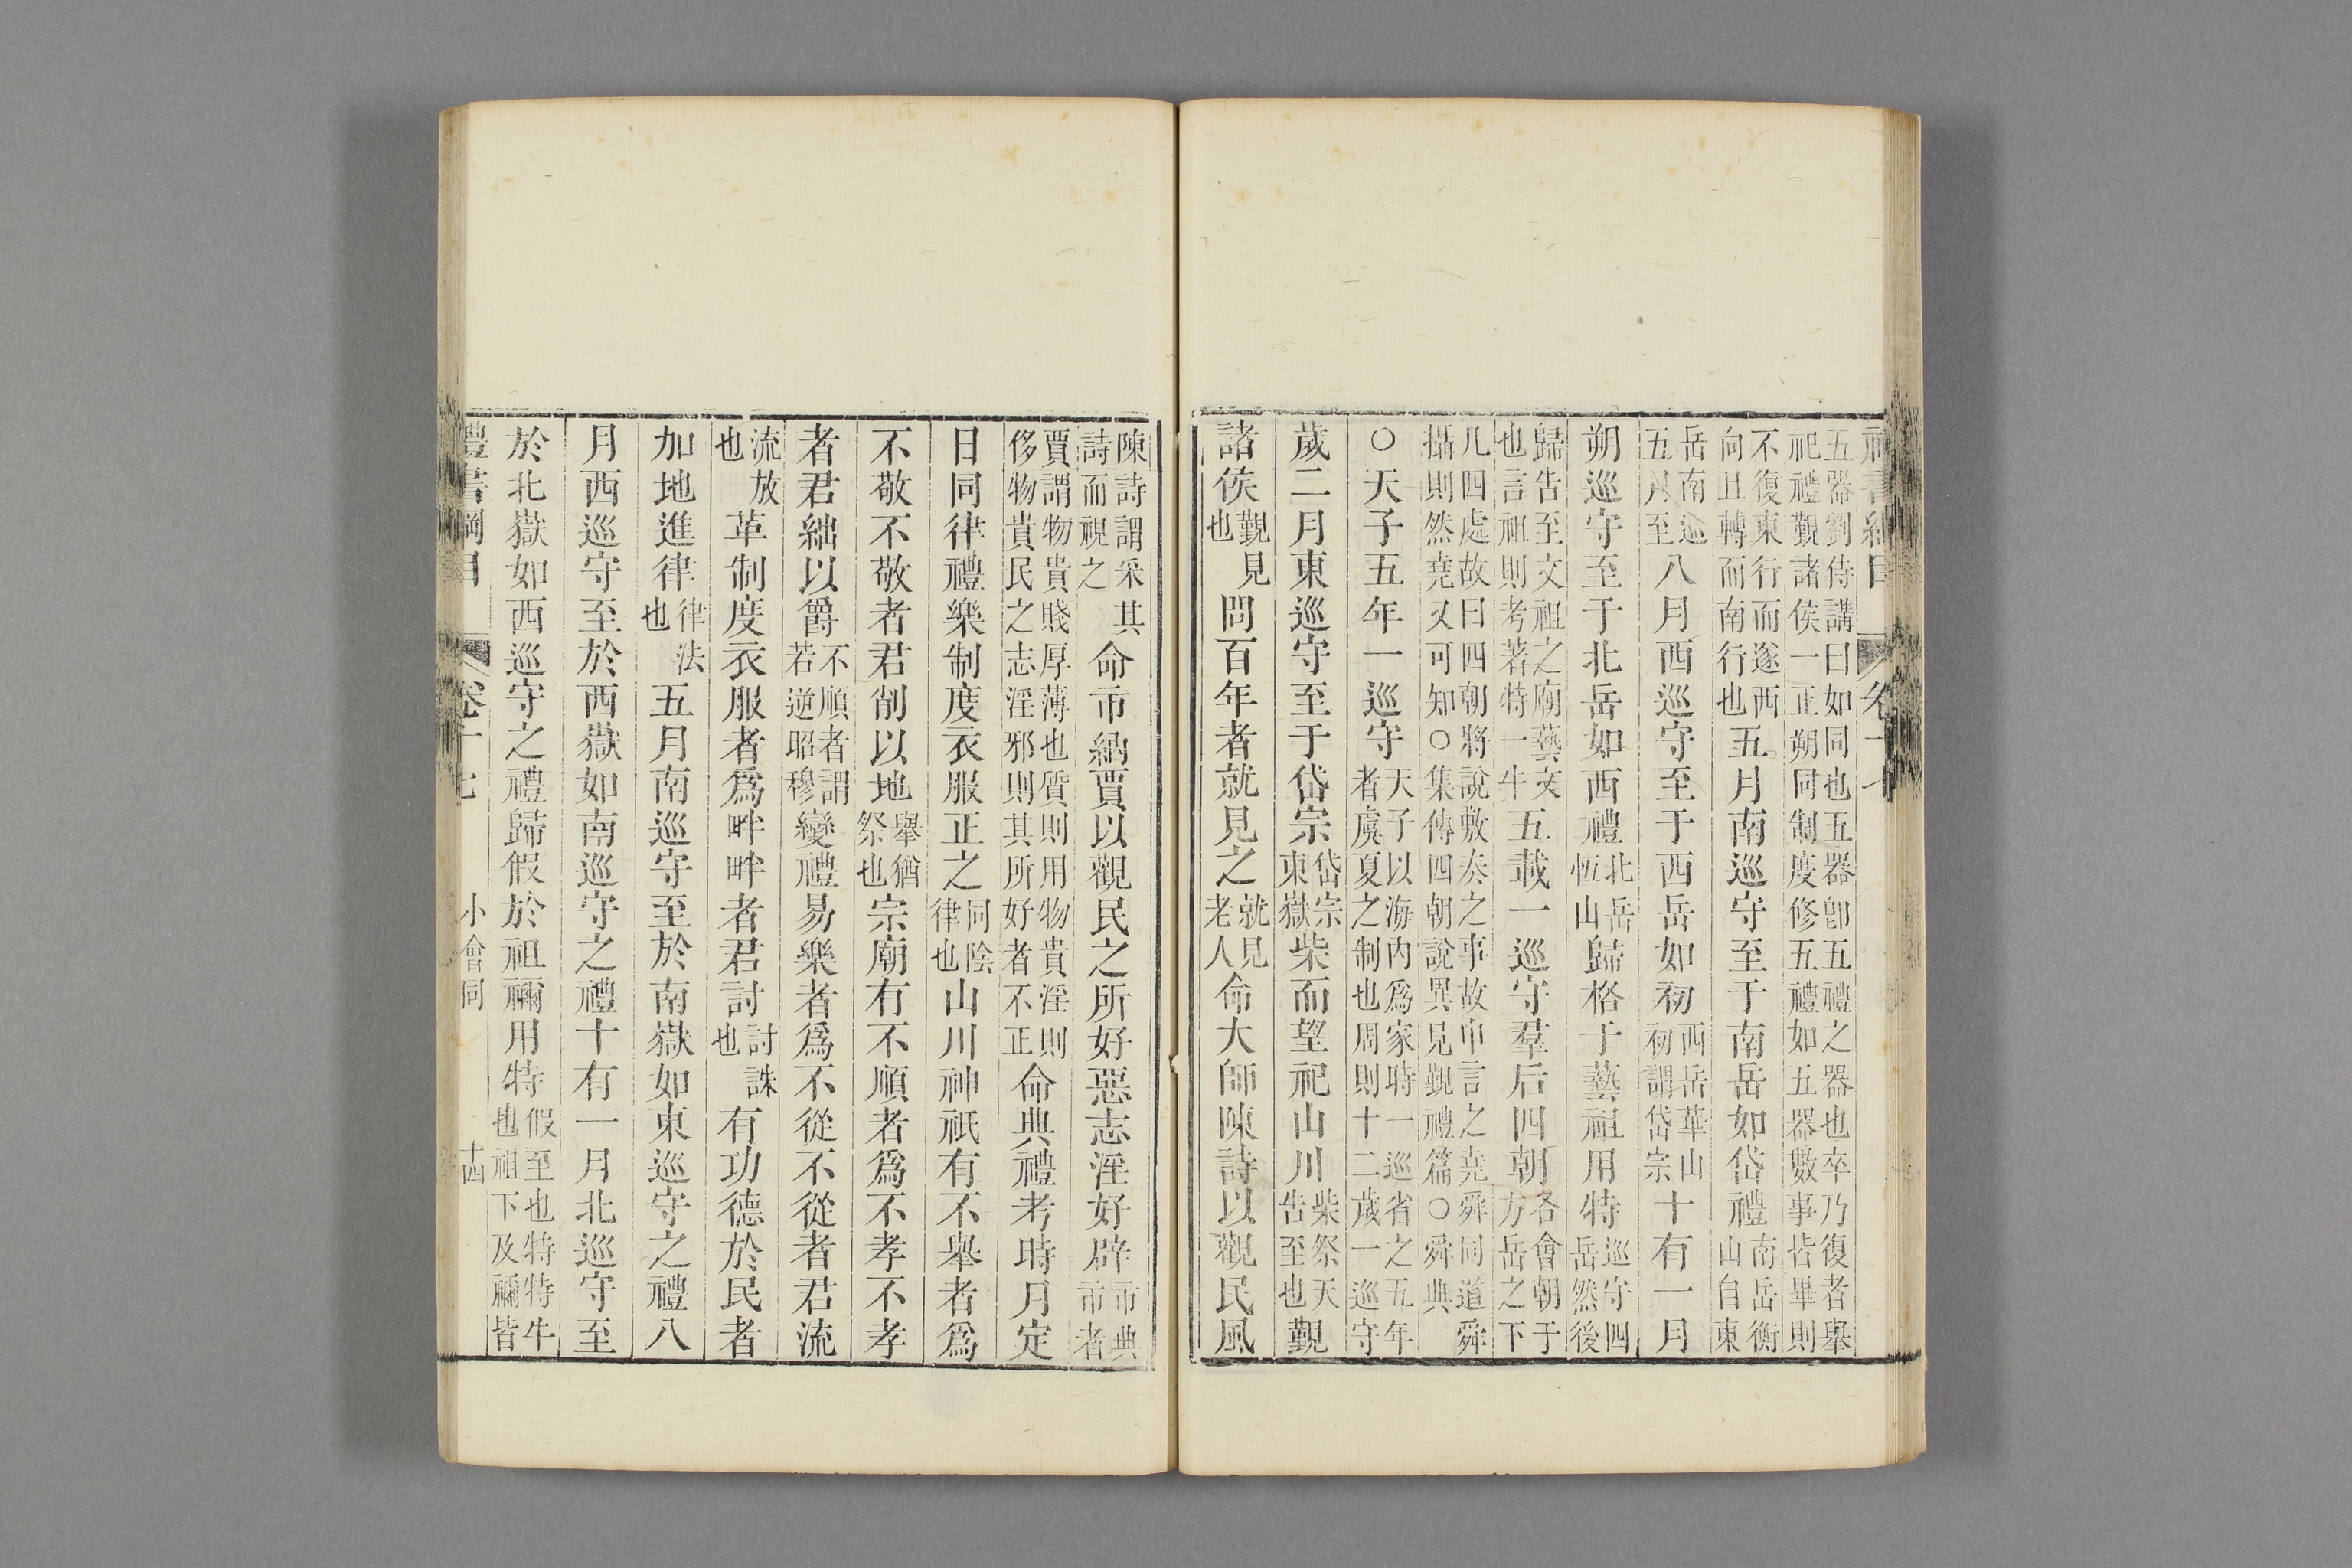 禮書綱目 卷十七
五器劉侍講曰如同也五器卽五禮之器也卒乃復者舉
祀禮覲諸侯一正朔同制度修五禮如五器數事皆畢則
不復東行而遂西向且轉而南行也五月南巡守至于南岳如岱禮南岳衡山自東
岳南巡五月至八月西巡守至于西岳如初西岳華山初謂岱宗十有一月
朔巡守至于北岳如西禮北岳恆山歸格于藝祖用特巡守四岳然後
歸告至文祖之廟藝文也言祖則考著特一牛五載一巡守羣后四朝各會朝于方岳之下
凡四處故曰四朝將說敷奏之事故申言之堯舜同道舜
攝則然堯又可知○集傳四朝說異見覲禮篇○舜典
○天子五年一巡守天子以海內爲家時一巡省之五年者虞夏之制也周則十二歲一巡守
歲二月東巡守至于岱宗岱宗東嶽柴而望祀山川柴祭天告至也覲
諸侯覲見也問百年者就見之就見老人命大師陳詩以觀民風
陳詩謂采其詩而視之命市納賈以觀民之所好惡志淫好辟市典市者
賈謂物貴賤厚薄也質則用物貴淫則侈物貴民之志淫邪則其所好者不正命典禮考時月定
日同律禮樂制度衣服正之同陰律也山川神祇有不舉者爲
不敬不敬者君削以地舉猶祭也宗廟有不順者爲不孝不孝
者君絀以爵不順者謂若逆昭穆變禮易樂者爲不從不從者君流
流放也革制度衣服者爲畔畔者君討討誅也有功德於民者
加地進律律法也五月南巡守至於南嶽如東巡守之禮八
月西巡守至於西嶽如南巡守之禮十有一月北巡守至
於北嶽如西巡守之禮歸假於祖禰用特假至也特特牛也祖下及禰皆
禮書綱目 卷十七 小會同 十四